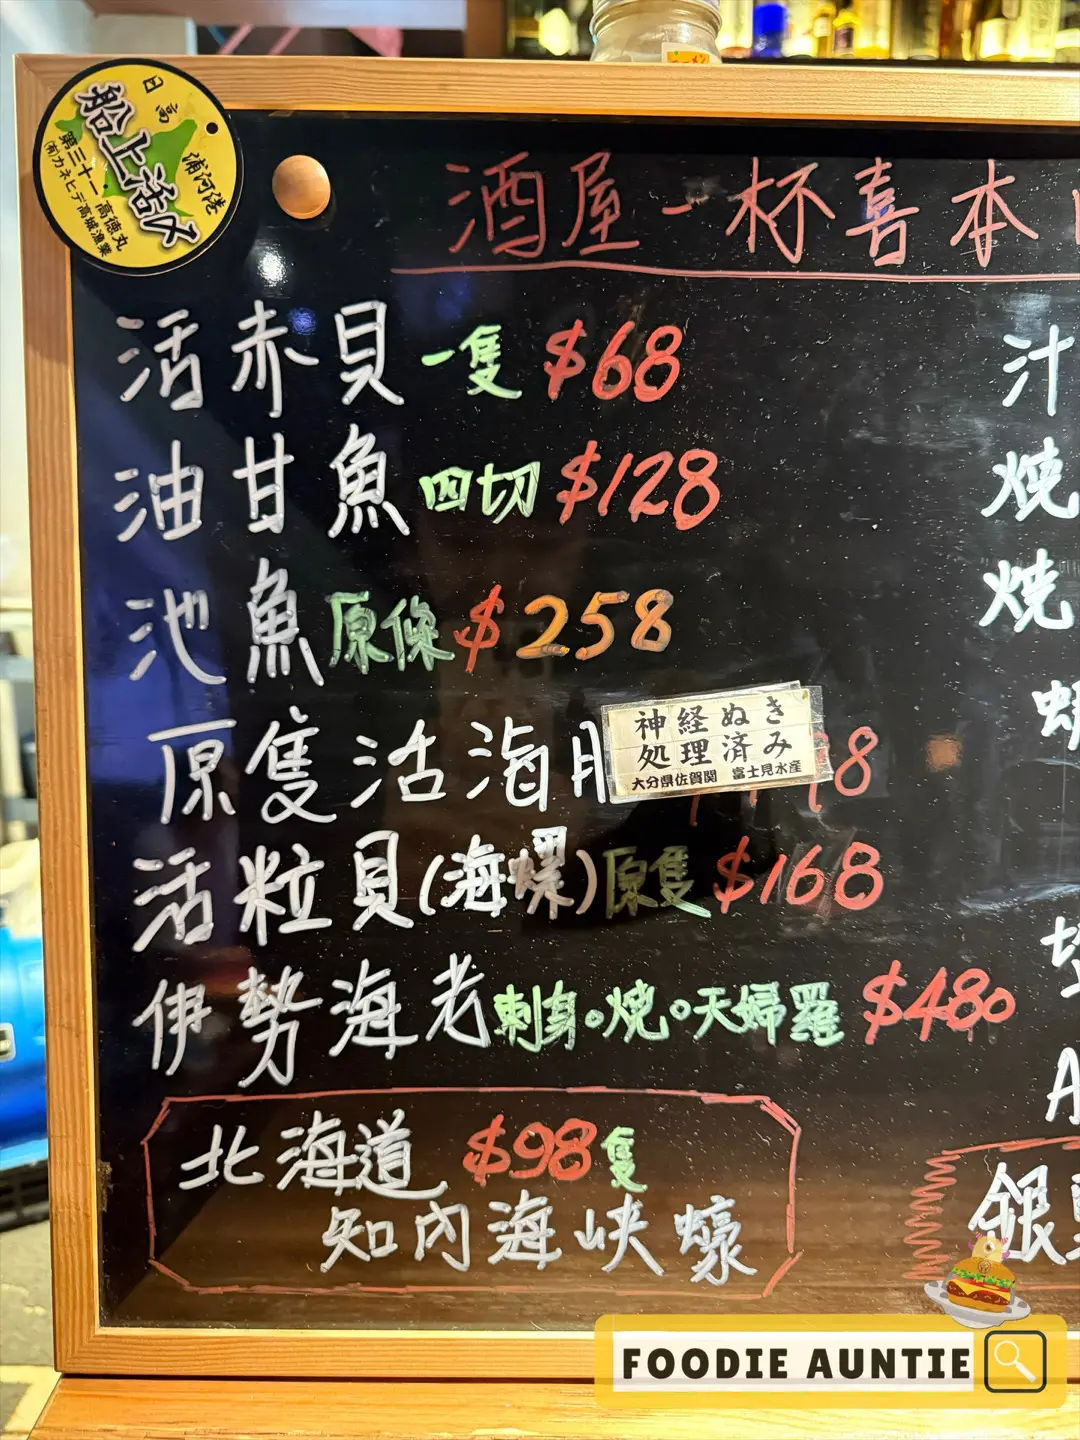 日高
浦河港
船上活〆
第三十一 高徳丸
(有)カネヒデ高城漁業
酒屋-杯喜本
活赤貝 一隻 $68
油甘魚 四切 $128
池魚 原條 $258
原隻活海
神経ぬき
処理済み
大分県佐賀関 富士見水産
8
活粒貝(海螺)原隻 $168
伊勢海老 刺身。燒。天婦羅 $480
北海道 $98隻
知內海峽蠔
汁
燒
燒
A
銀
FOODIE AUNTIE